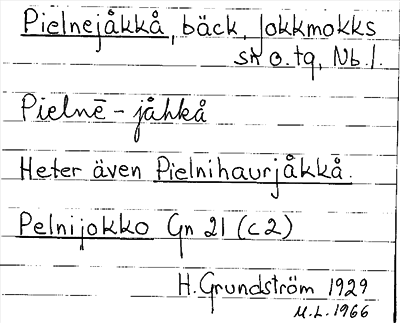 Pielnejåkkå, bäck, Jokkmokks
sn o. tg, Nb. l.
Pielnē - jåhkå
Heter även Pielnihaurjåkkå.
Pelnijokko Gn 21 (c2)
H. Grundström 1929
M.L. 1966